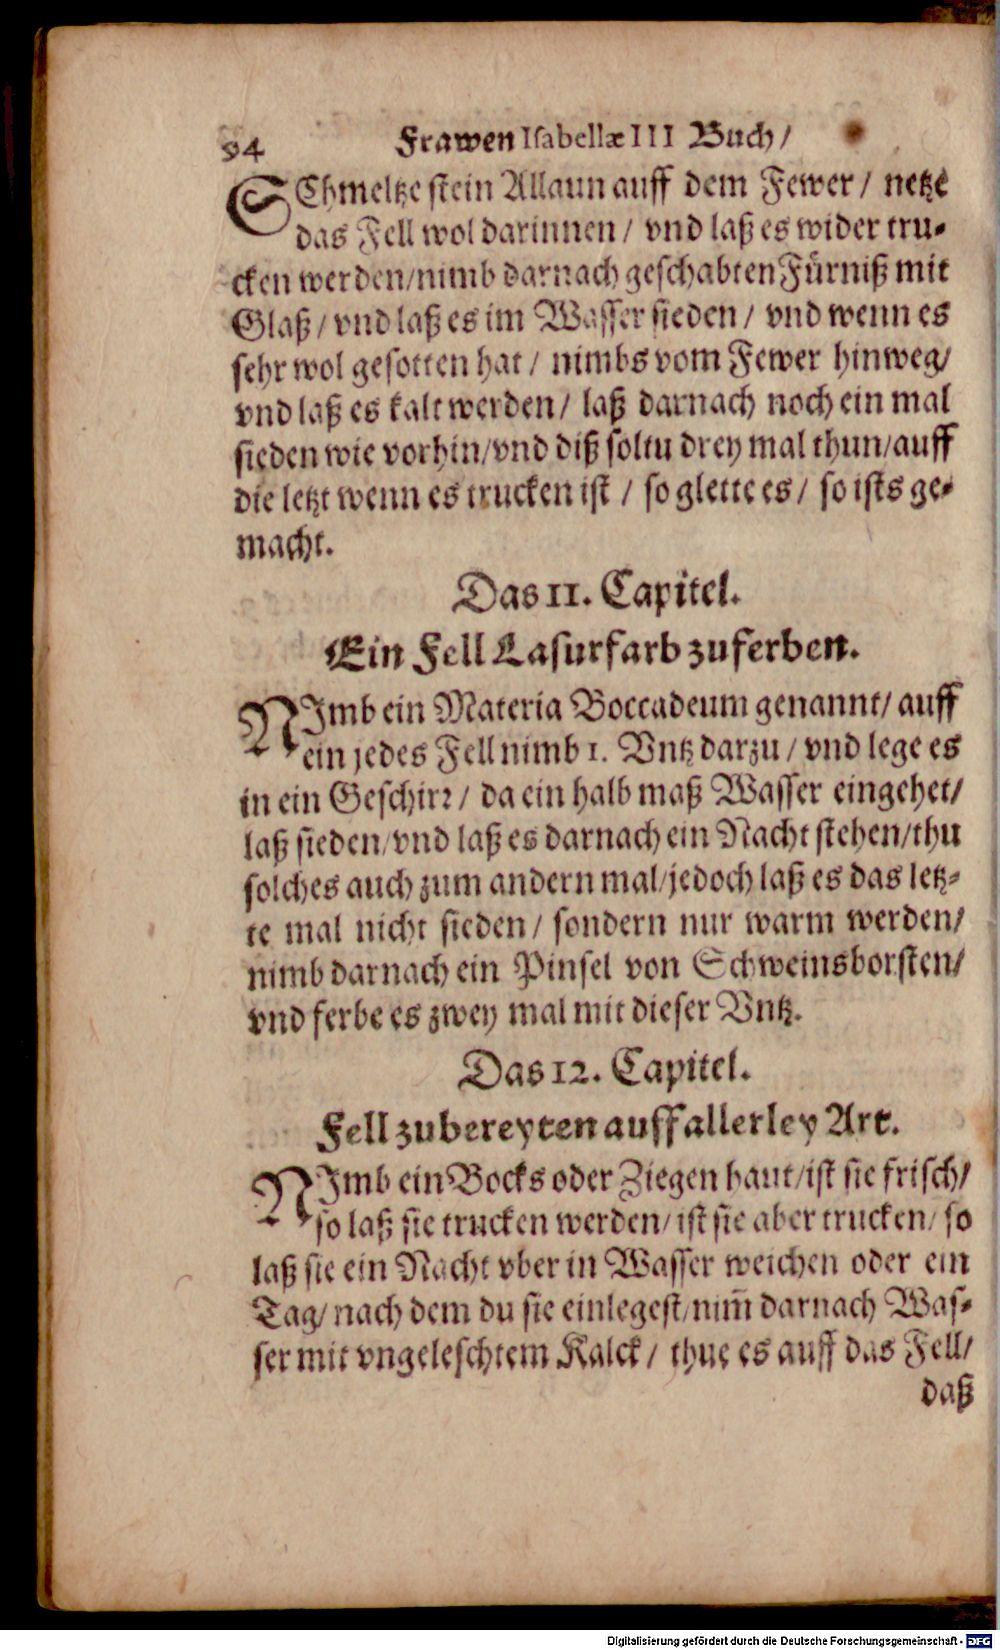 94 Frawen Isabellæ III Buch/
SChmeltze stein Allaun auff dem Fewer / netze
das Fell wol darinnen / vnd laß es wider tru-
cken werden/nimb darnach geschabten Fürniß mit
Glaß / vnd laß es im Wasser sieden / vnd wenn es
sehr wol gesotten hat / nimbs vom Fewer hinweg/
vnd laß es kalt werden / laß darnach noch ein mal
sieden wie vorhin/vnd diß soltu drey mal thun/auff
die letzt wenn es trucken ist / so glette es / so ists ge-
macht.
Das 11. Capitel.
Ein Fell Lasurfarb zu ferben.
NImb ein Materia Boccadeum genannt/ auff
ein jedes Fell nimb 1. Vntz darzu / vnd lege es
in ein Geschirr / da ein halb maß Wasser eingehet/
laß sieden/vnd laß es darnach ein Nacht stehen/thu
solches auch zum andern mal/jedoch laß es das letz-
te mal nicht sieden / sondern nur warm werden/
nimb darnach ein Pinsel von Schweinsborsten/
vnd ferbe es zwey mal mit dieser Vntz.
Das 12. Capitel.
Fell zubereyten auff allerley Art.
NImb ein Bocks oder Ziegen haut/ist sie frisch/
so laß sie trucken werden/ist sie aber trucken/ so
laß sie ein Nacht vber in Wasser weichen oder ein
Tag/ nach dem du sie einlegest/nim̄ darnach Was-
ser mit vngeleschtem Kalck / thue es auff das Fell/
daß
Digitalisierung gefördert durch die Deutsche Forschungsgemeinschaft - DFG